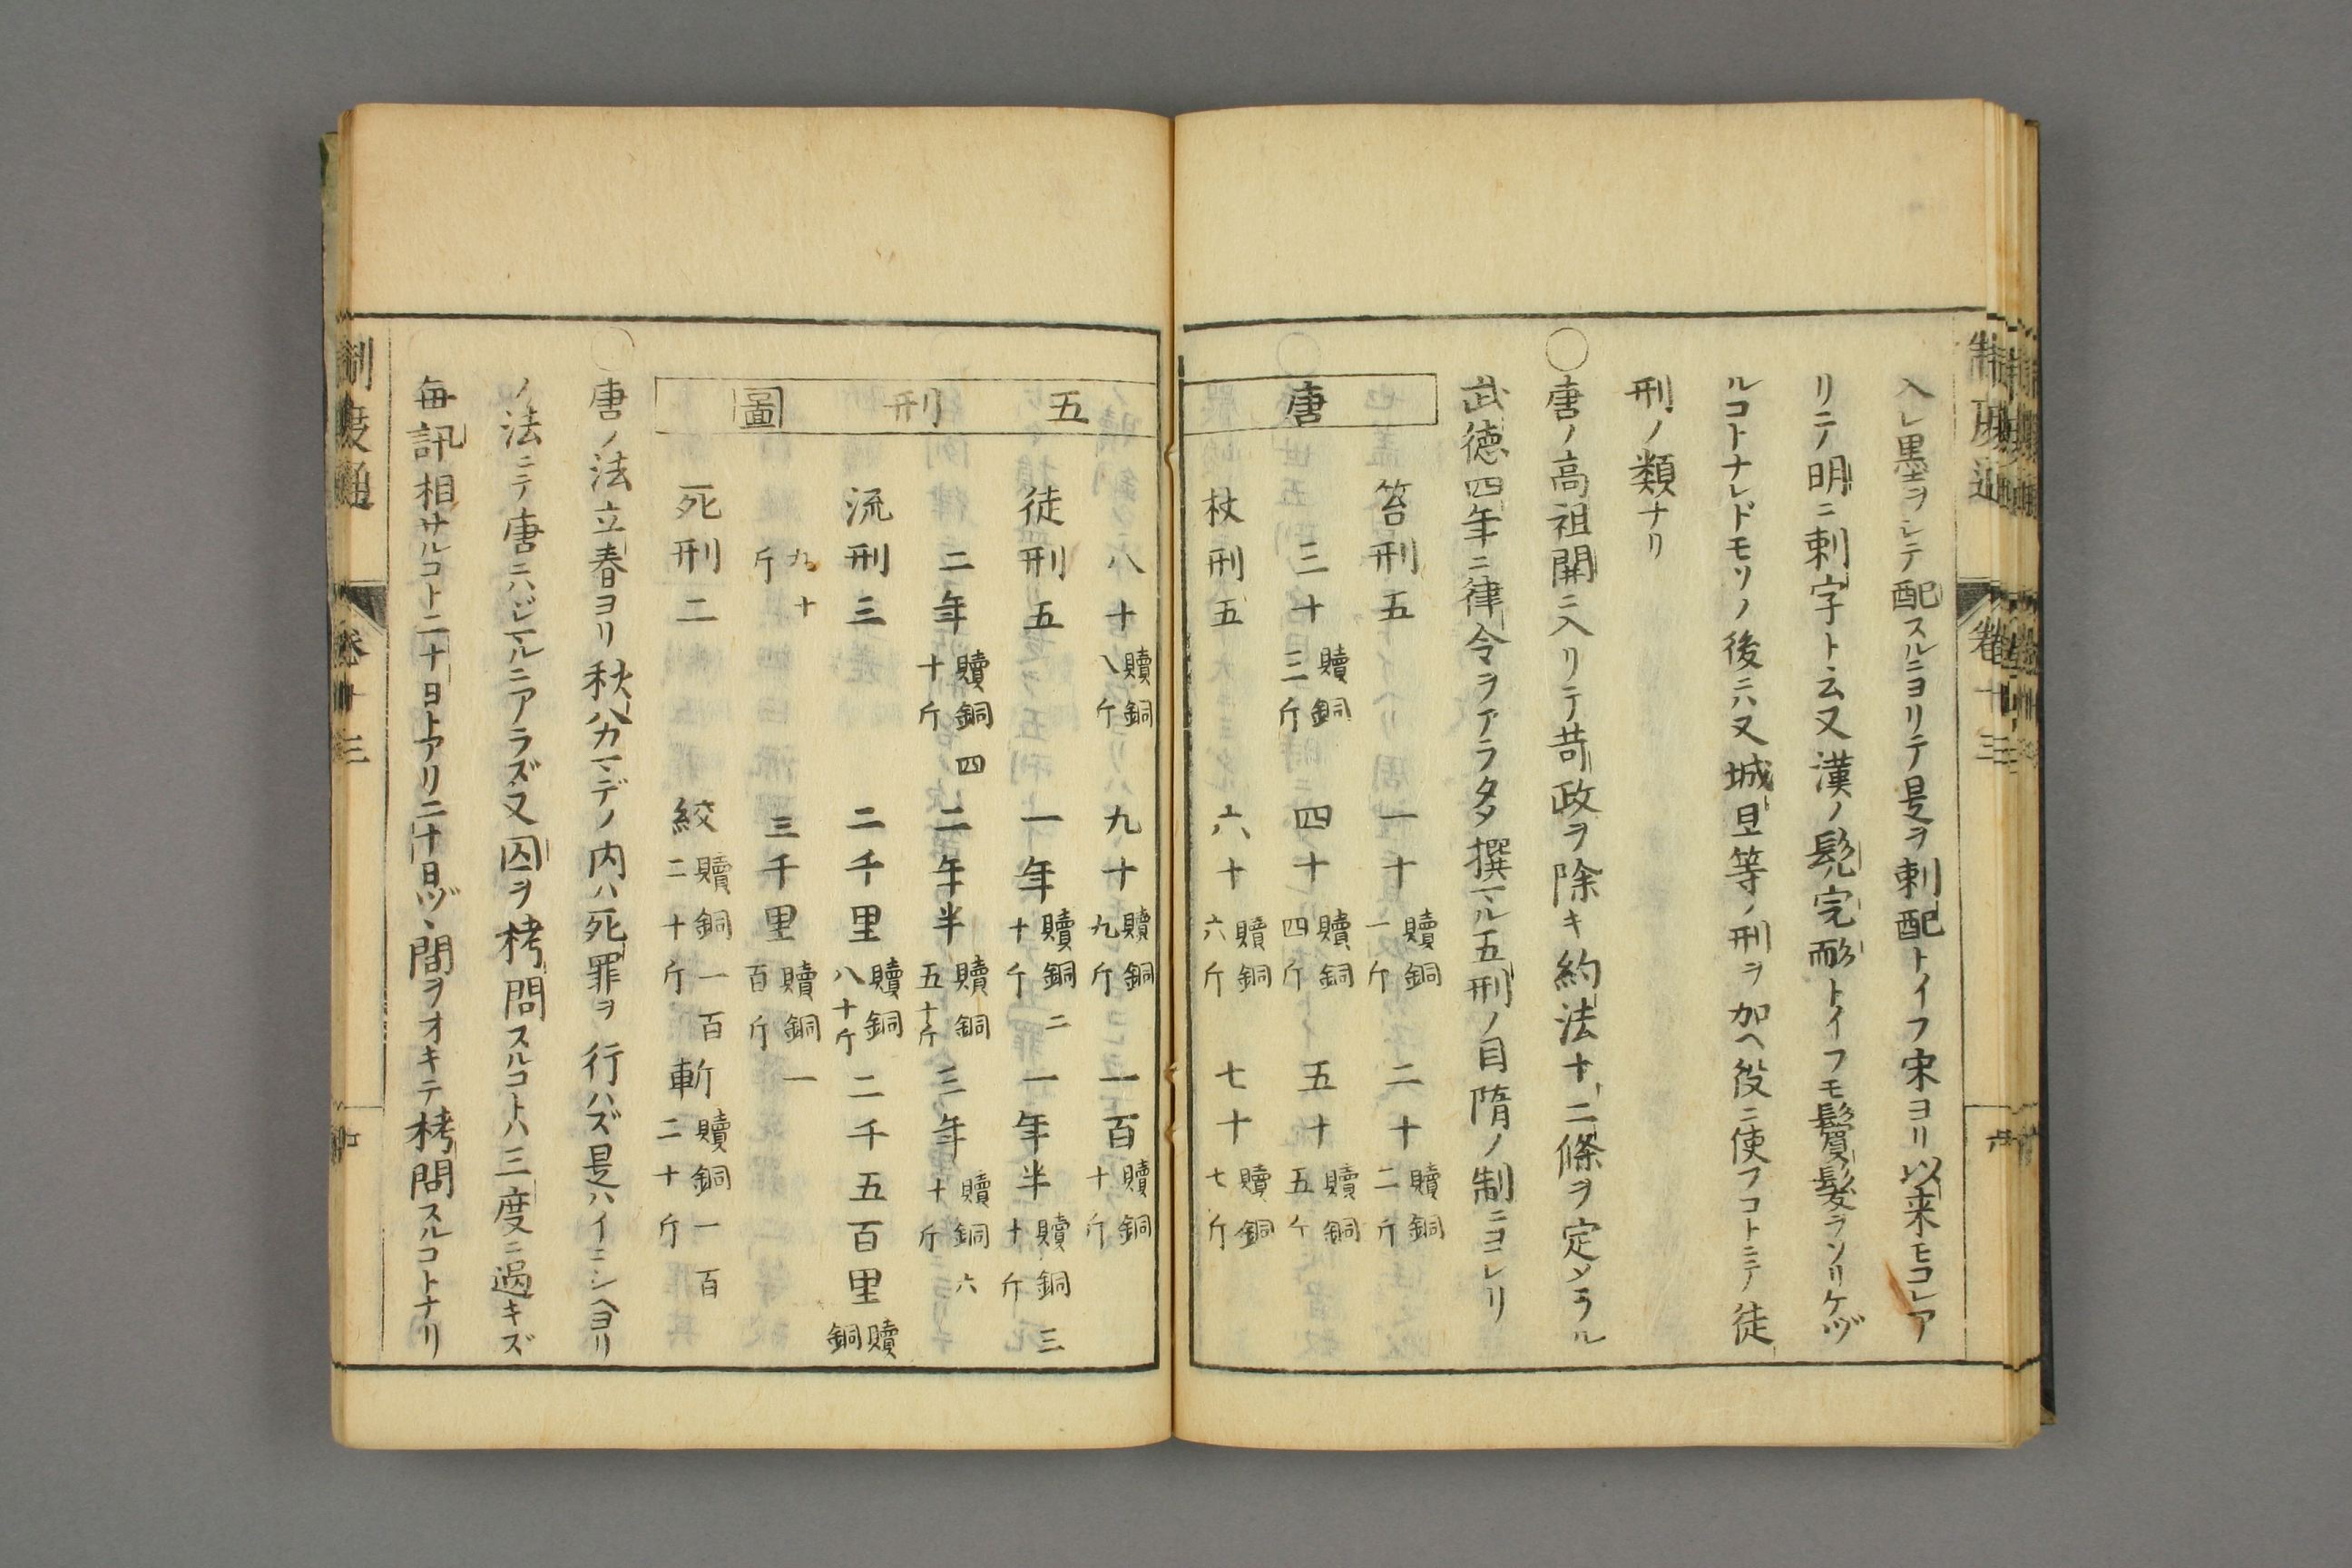 入レ墨ヲシテ配スルニヨリテ是ヲ刺配トイフ宋ヨリ以来モコレア
リニテ明ニ刺字ト云又漢ノ髡完耏トイフモ鬢髪ヲソリケヅ
ルコトナレドモソノ後ニハ又城旦等ノ刑ヲ加ヘ役ニ使フコトニテ徒
刑ノ類ナリ
○唐ノ高祖關ニ入リテ苛政ヲ除キ約法十二條ヲ定メラル
武德四年ニ律令ヲアラタメ撰マル五刑ノ目隋ノ制ニヨレリ
唐
笞刑五 一十 贖銅一斤 二十 贖銅二斤
三十 贖銅三斤 四十 贖銅四斤 五十 贖銅五斤
杖刑五 六十 贖銅六斤 七十 贖銅七斤
五刑圖
八十 贖銅八斤 九十 贖銅九斤 一百 贖銅十斤
徒刑五 一年 贖銅二十斤 一年半 贖銅三十斤
二年 贖銅四十斤 二年半 贖銅五十斤 三年 贖銅六十斤
流刑三 二千里 贖銅八十斤 二千五百里 贖銅
九十斤 三千里 贖銅一百斤
死刑二 絞 贖銅一百二十斤 斬 贖銅一百二十斤
○唐ノ法立春ヨリ秋分マデノ内ハ死罪ヲ行ハズ是ハイニシヘヨリ
ノ法ニテ唐ニハジマルニアラズ又囚ヲ栲問スルコトハ三度ニ過キズ
毎訊相サルコト二十日トアリ二十日ヅヽ間ヲオキテ栲問スルコトナリ
制度通 卷十三